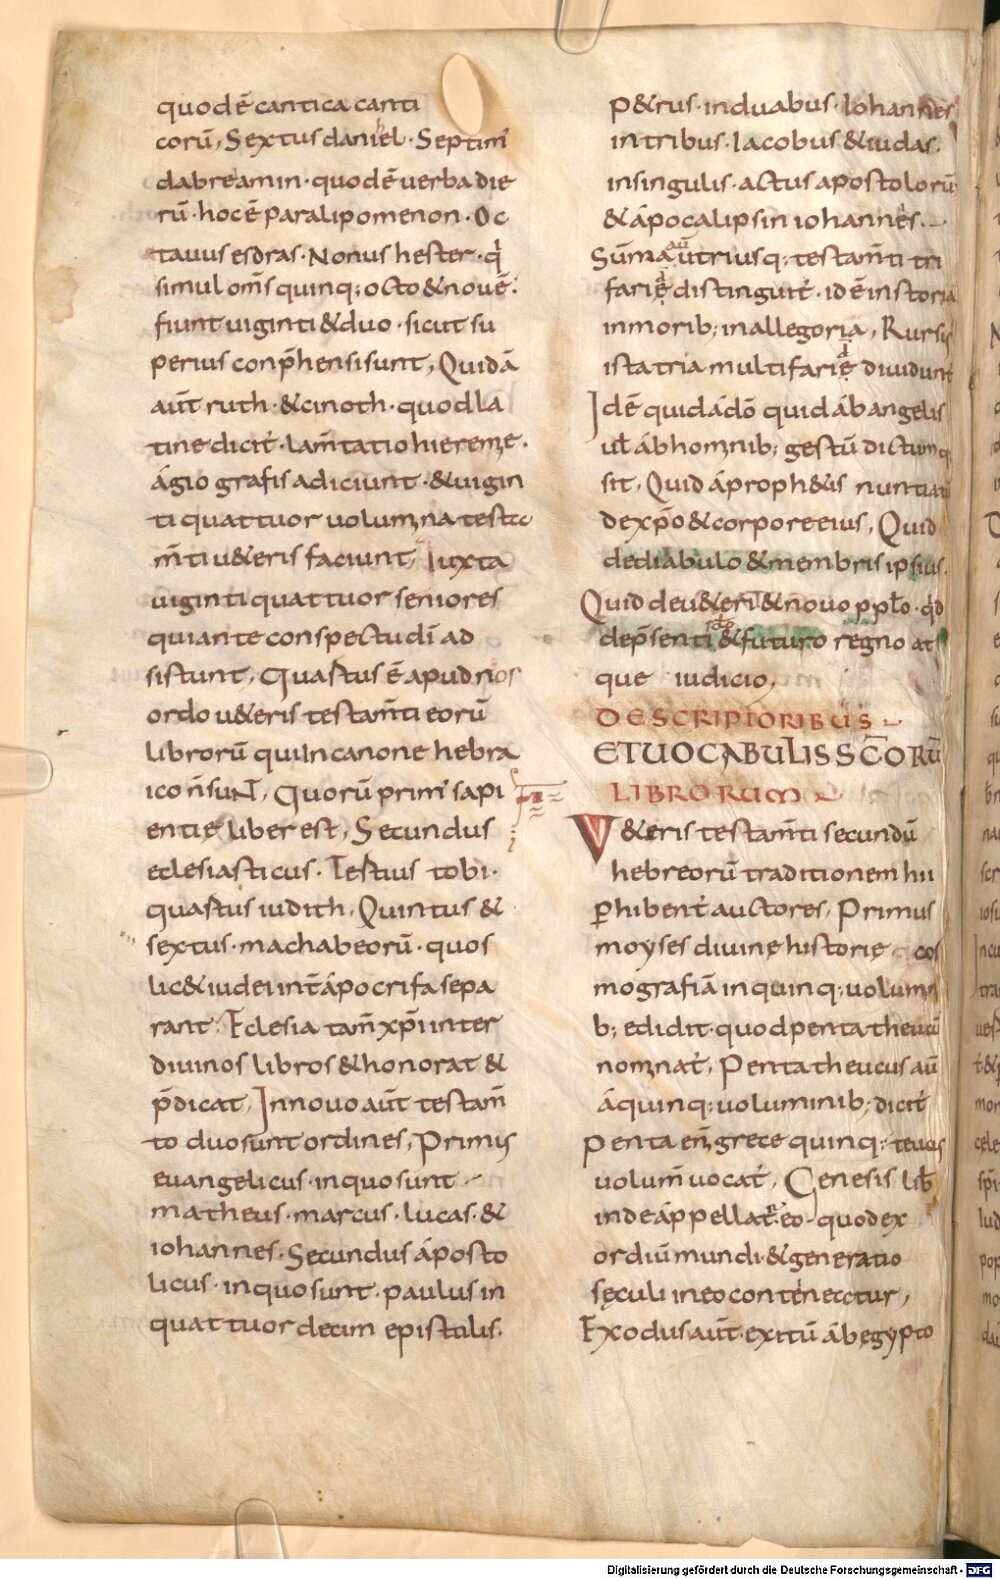 quod ē cantica canti
corū, Sextus daniel · Septim᾽
dabreamin · quod ē uerba die
rū · hoc ē paralipomenon · Oc
tauus esdras · Nonus hester · q
simul om̄s quinq; octo & nouē ·
fiunt uiginti & duo · sicut su
perius conp̄hensi sunt, Quidā
aūt ruth · & cinoth · quod la
tine dicit᾽ · lam̄tatio hieremę ·
ágio grafis adiciunt · & uigin
ti quattuor uolumina testa
m̄ti u&eris faciunt, Iuxta
uiginti quattuor seniores
qui ante conspectu dī ad
sistunt, Quartus ē apud nos
ordo u&eris testam̄ti eorū
librorū qui In canone hebra
ico ñ suNT, Quorū prim᾽ sapi
entię liber est, Secundus
eclesiasticus · Tertius tobi ·
quartus iudith, Quintus &
sextus · machabeorū · quos
lic& iudei int̄ ápocrifa sepa
rant · Eclesia tam̄ xp̄i inter
diuinos libros & honorat &
p̄dicat, In nouo aūt testam̄
to duo sunt ordines, Primus
euangelicus · in quo sunt
matheus · marcus · lucas · &
iohannes · Secundus áposto
licus · in quo sunt · paulus in
quattuor decim epistulis ·
p&rus · in duabus · Iohannes
in tribus · Iacobus & iudas ·
in singulis · actus apostolorū
& ápocalipsin iohannes ·
Sūma aū utriusq; testam̄ti tri
farię distinguit᾽ · id ē in storia
in morib; in allegoria, Rursus
ista tria multifarię diuidunt
Idē quid á dō quid áb angelis
uł áb hominib; gestū dictumq
sit, Quid á proph&is nuntiat
de xp̄o & corpore eius, Quid
de diabulo & membris ipsius ·
Quid de u&eri & nouo pp̄lo · qd
de p̄senti sclo & futuro regno at
que iudicio,
DE SCRIPTORIBUS
ET UOCABULIS SC̄ORŪ
LIBRORUM
V&eris testam̄ti secundū
hebreorū traditionem hii
p̱hibent᾽ auctores, Primus
moyses diuinę historię cos
mografiā in quinq; uolumi
b; edidit · quod pentatheucū
nominat᾽, Pentatheucus aū
á quinq; uoluminib; dicit᾽
Penta eni grece quinq; teucus
uolum̄ uocat᾽, Genesis lib̄
inde áppellat᾽ · eo · quod ex
ordiū mundi & generatio
sęculi in eo contenectur,
Exodus aūt exitū áb egypto
Digitalisierung gefördert durch die Deutsche Forschungsgemeinschaft - DFG